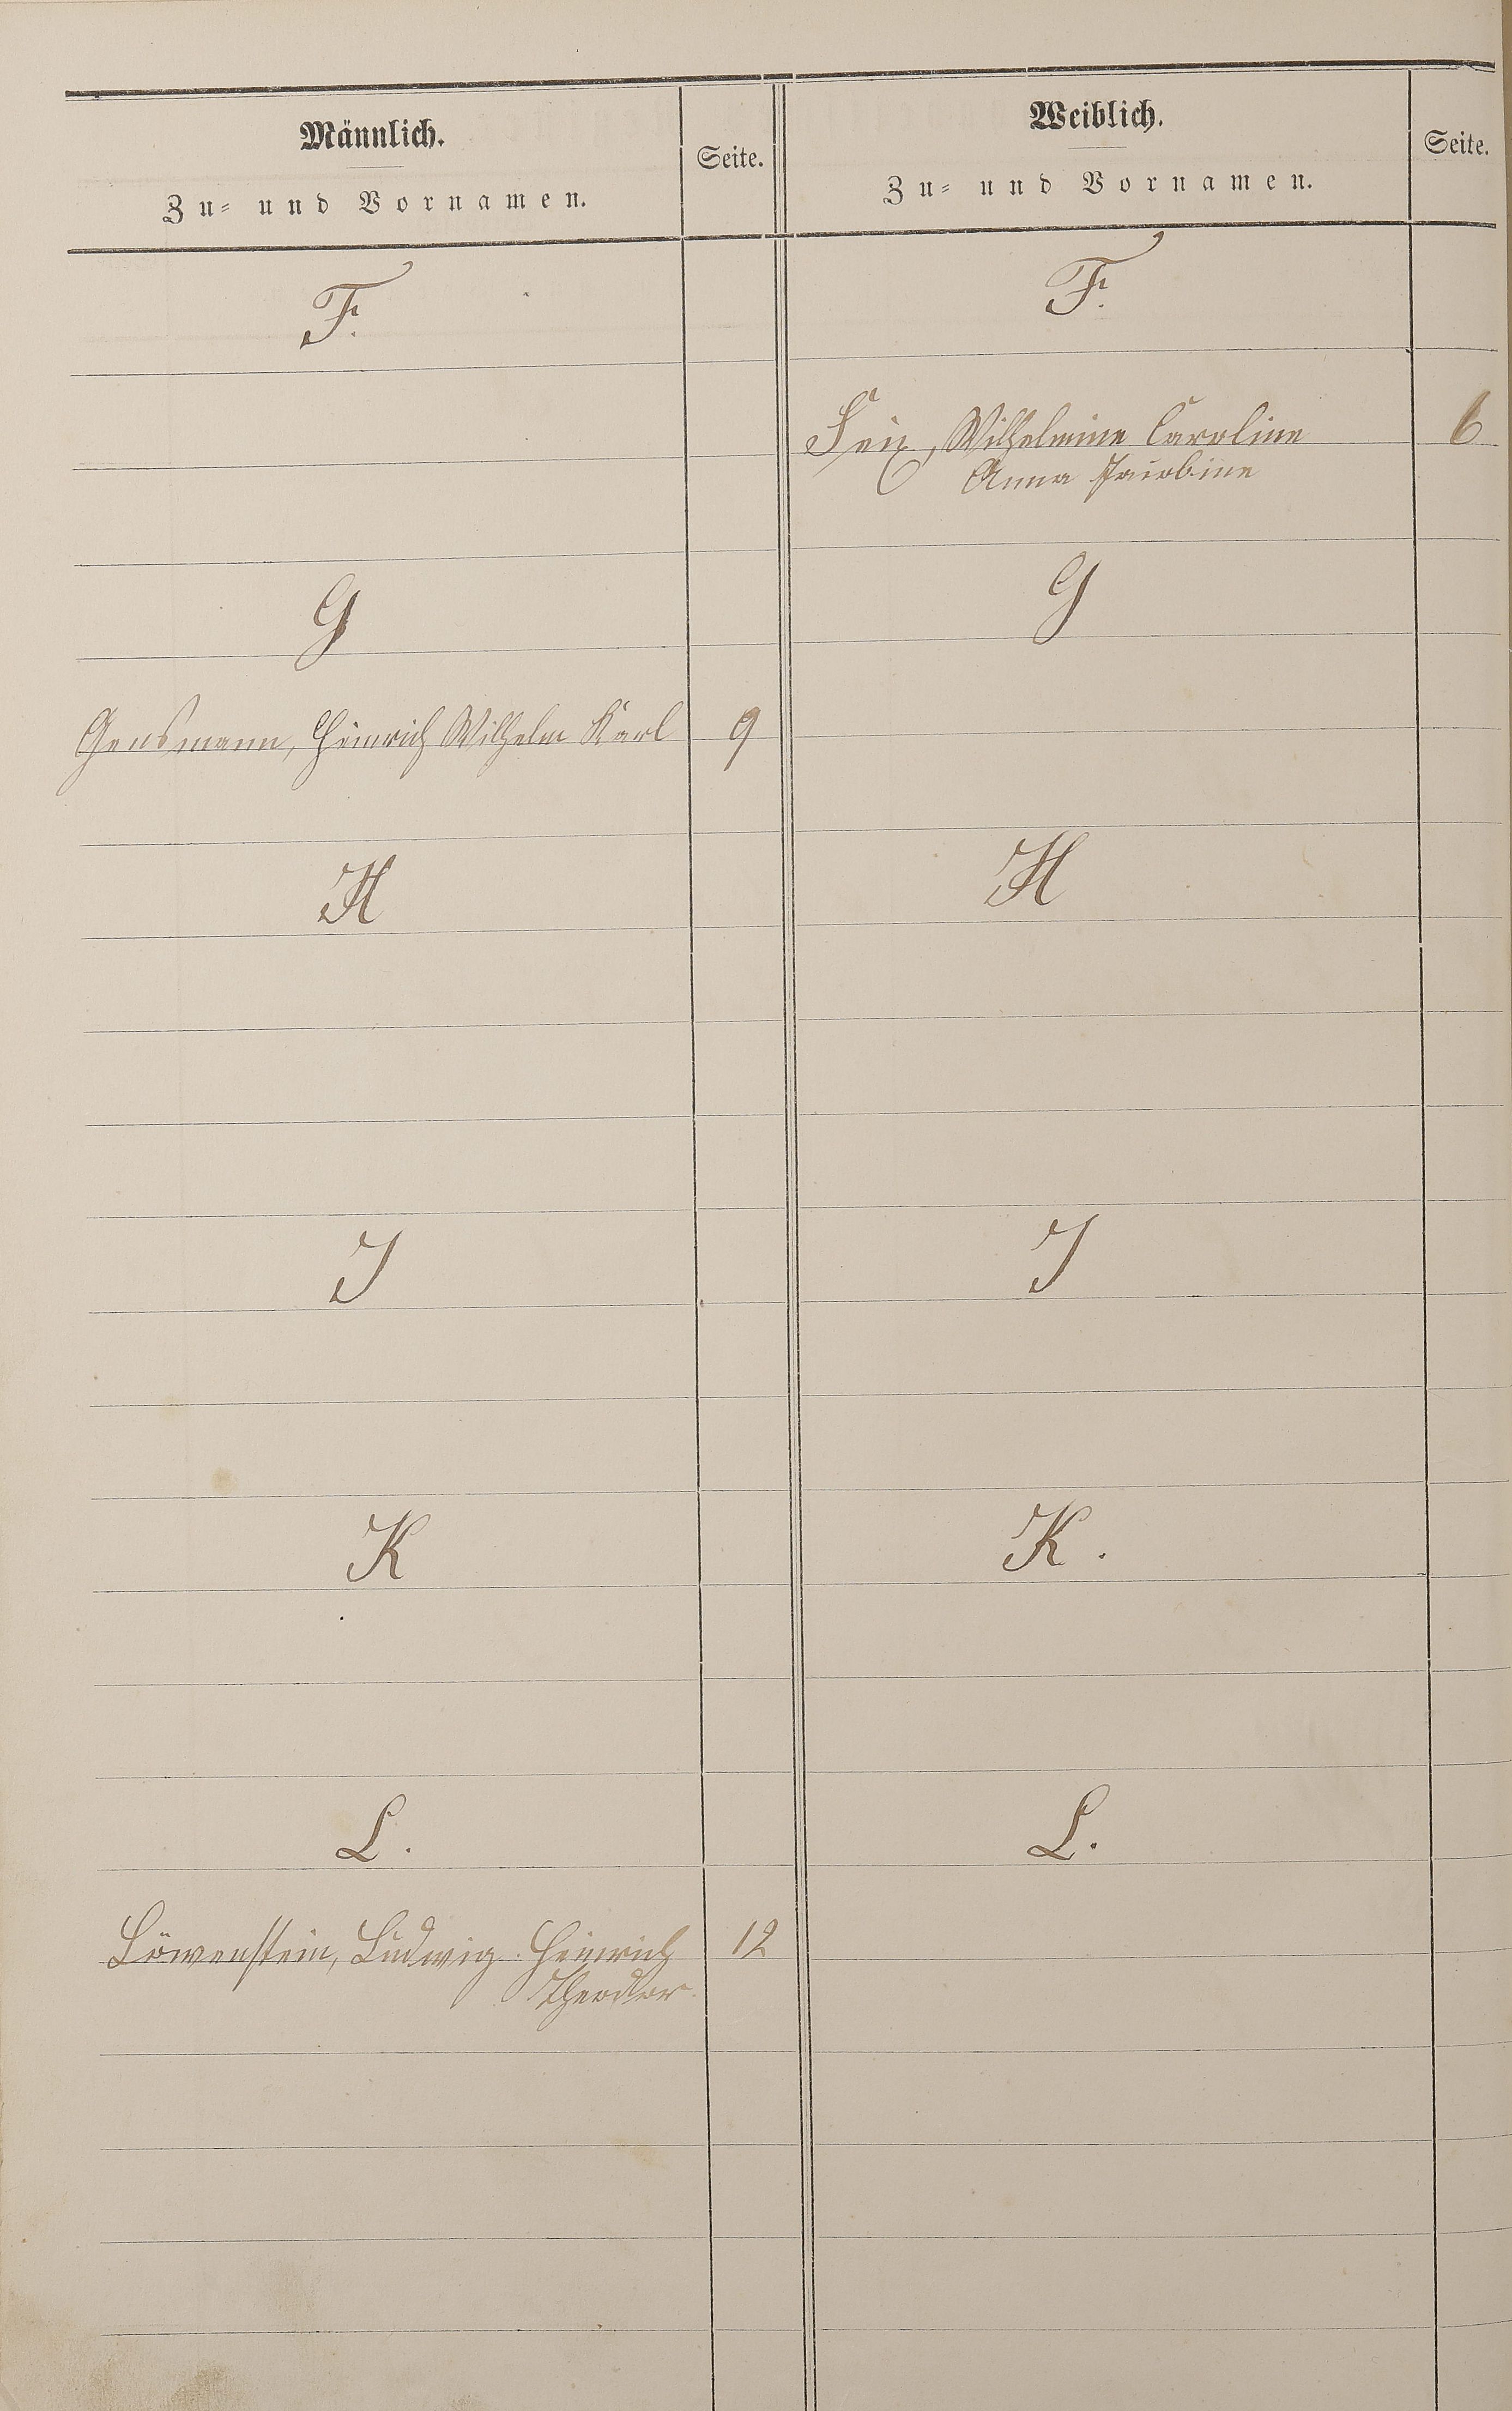 Männlich.
Zu- und Vornamen.
Seite.
Weiblich.
Zu- und Vornamen.
Seite.
F.
F.
Feix, Wilhelmine Caroline 6
Anna Jacobine
G
G
Gensmann, Heinrich Wilhelm Karl 9
H
H
J
J
K
K.
L.
L.
Löwenstein, Ludwig Heinrich 12
Theodor